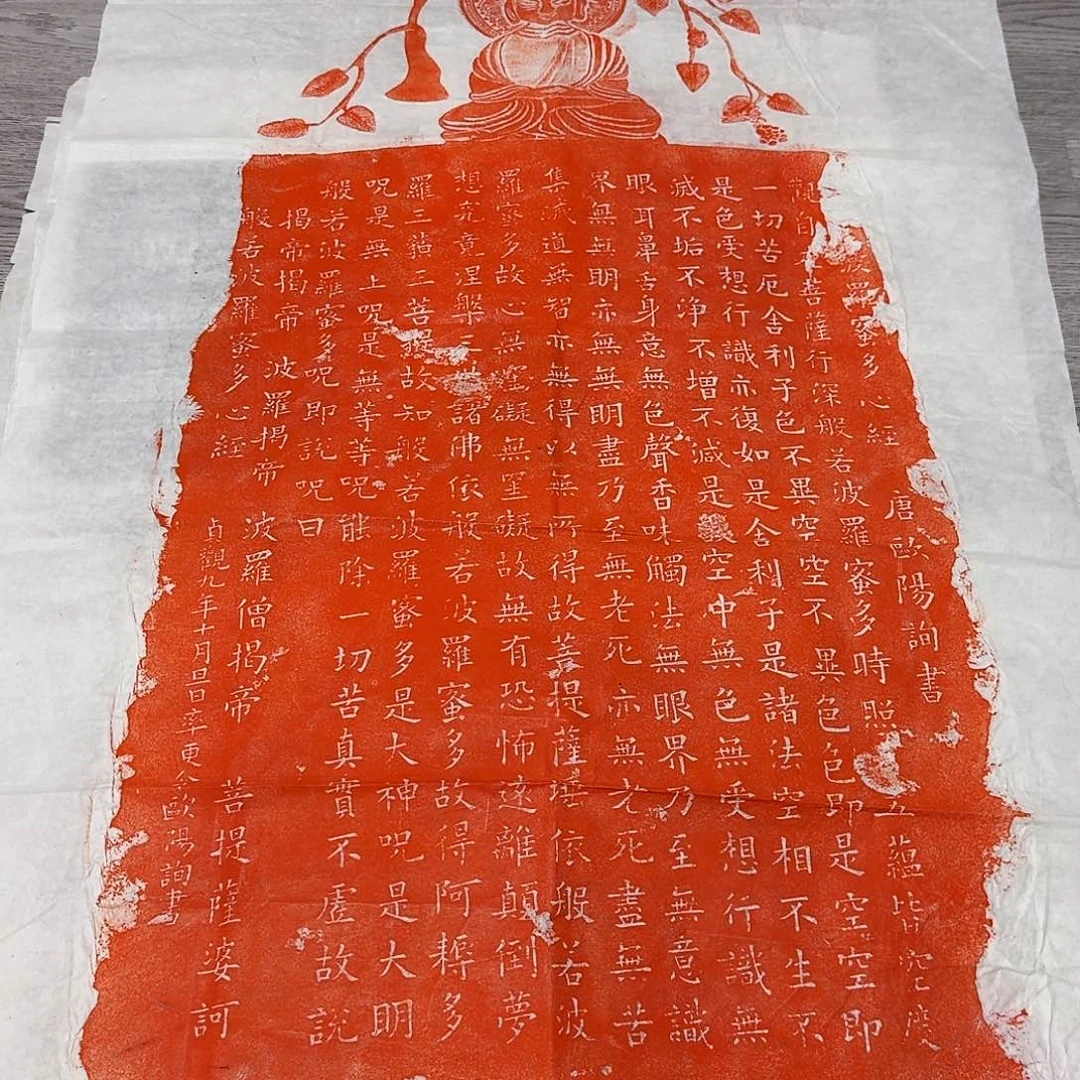 波羅蜜多心經 唐歐陽詢書
觀自菩薩行深般若波羅蜜多時照五蘊皆空度
一切苦厄舍利子色不異空空不異色色即是空空即
是色受想行識亦復如是舍利子是諸法空相不生不
滅不垢不净不增不減是空中無色無受想行識無
眼耳鼻舌身意無色聲香味觸法無眼界乃至無意識
界無無明亦無無明盡乃至無老死亦無老死盡無苦
集滅道無智亦無得以無所得故菩提薩埵依般若波
羅蜜多故心無罣礙無罣礙故無有恐怖遠離顛倒夢
想究竟涅槃三世諸佛依般若波羅蜜多故得阿耨多
羅三藐三菩提故知般若波羅蜜多是大神呪是大明
呪是無上呪是無等等呪能除一切苦真實不虛故說
般若波羅蜜多呪即說呪曰
揭帝揭帝 波羅揭帝 波羅僧揭帝 菩提薩婆訶
般若波羅蜜多心經 貞觀九年十月旦日率更令歐陽詢書